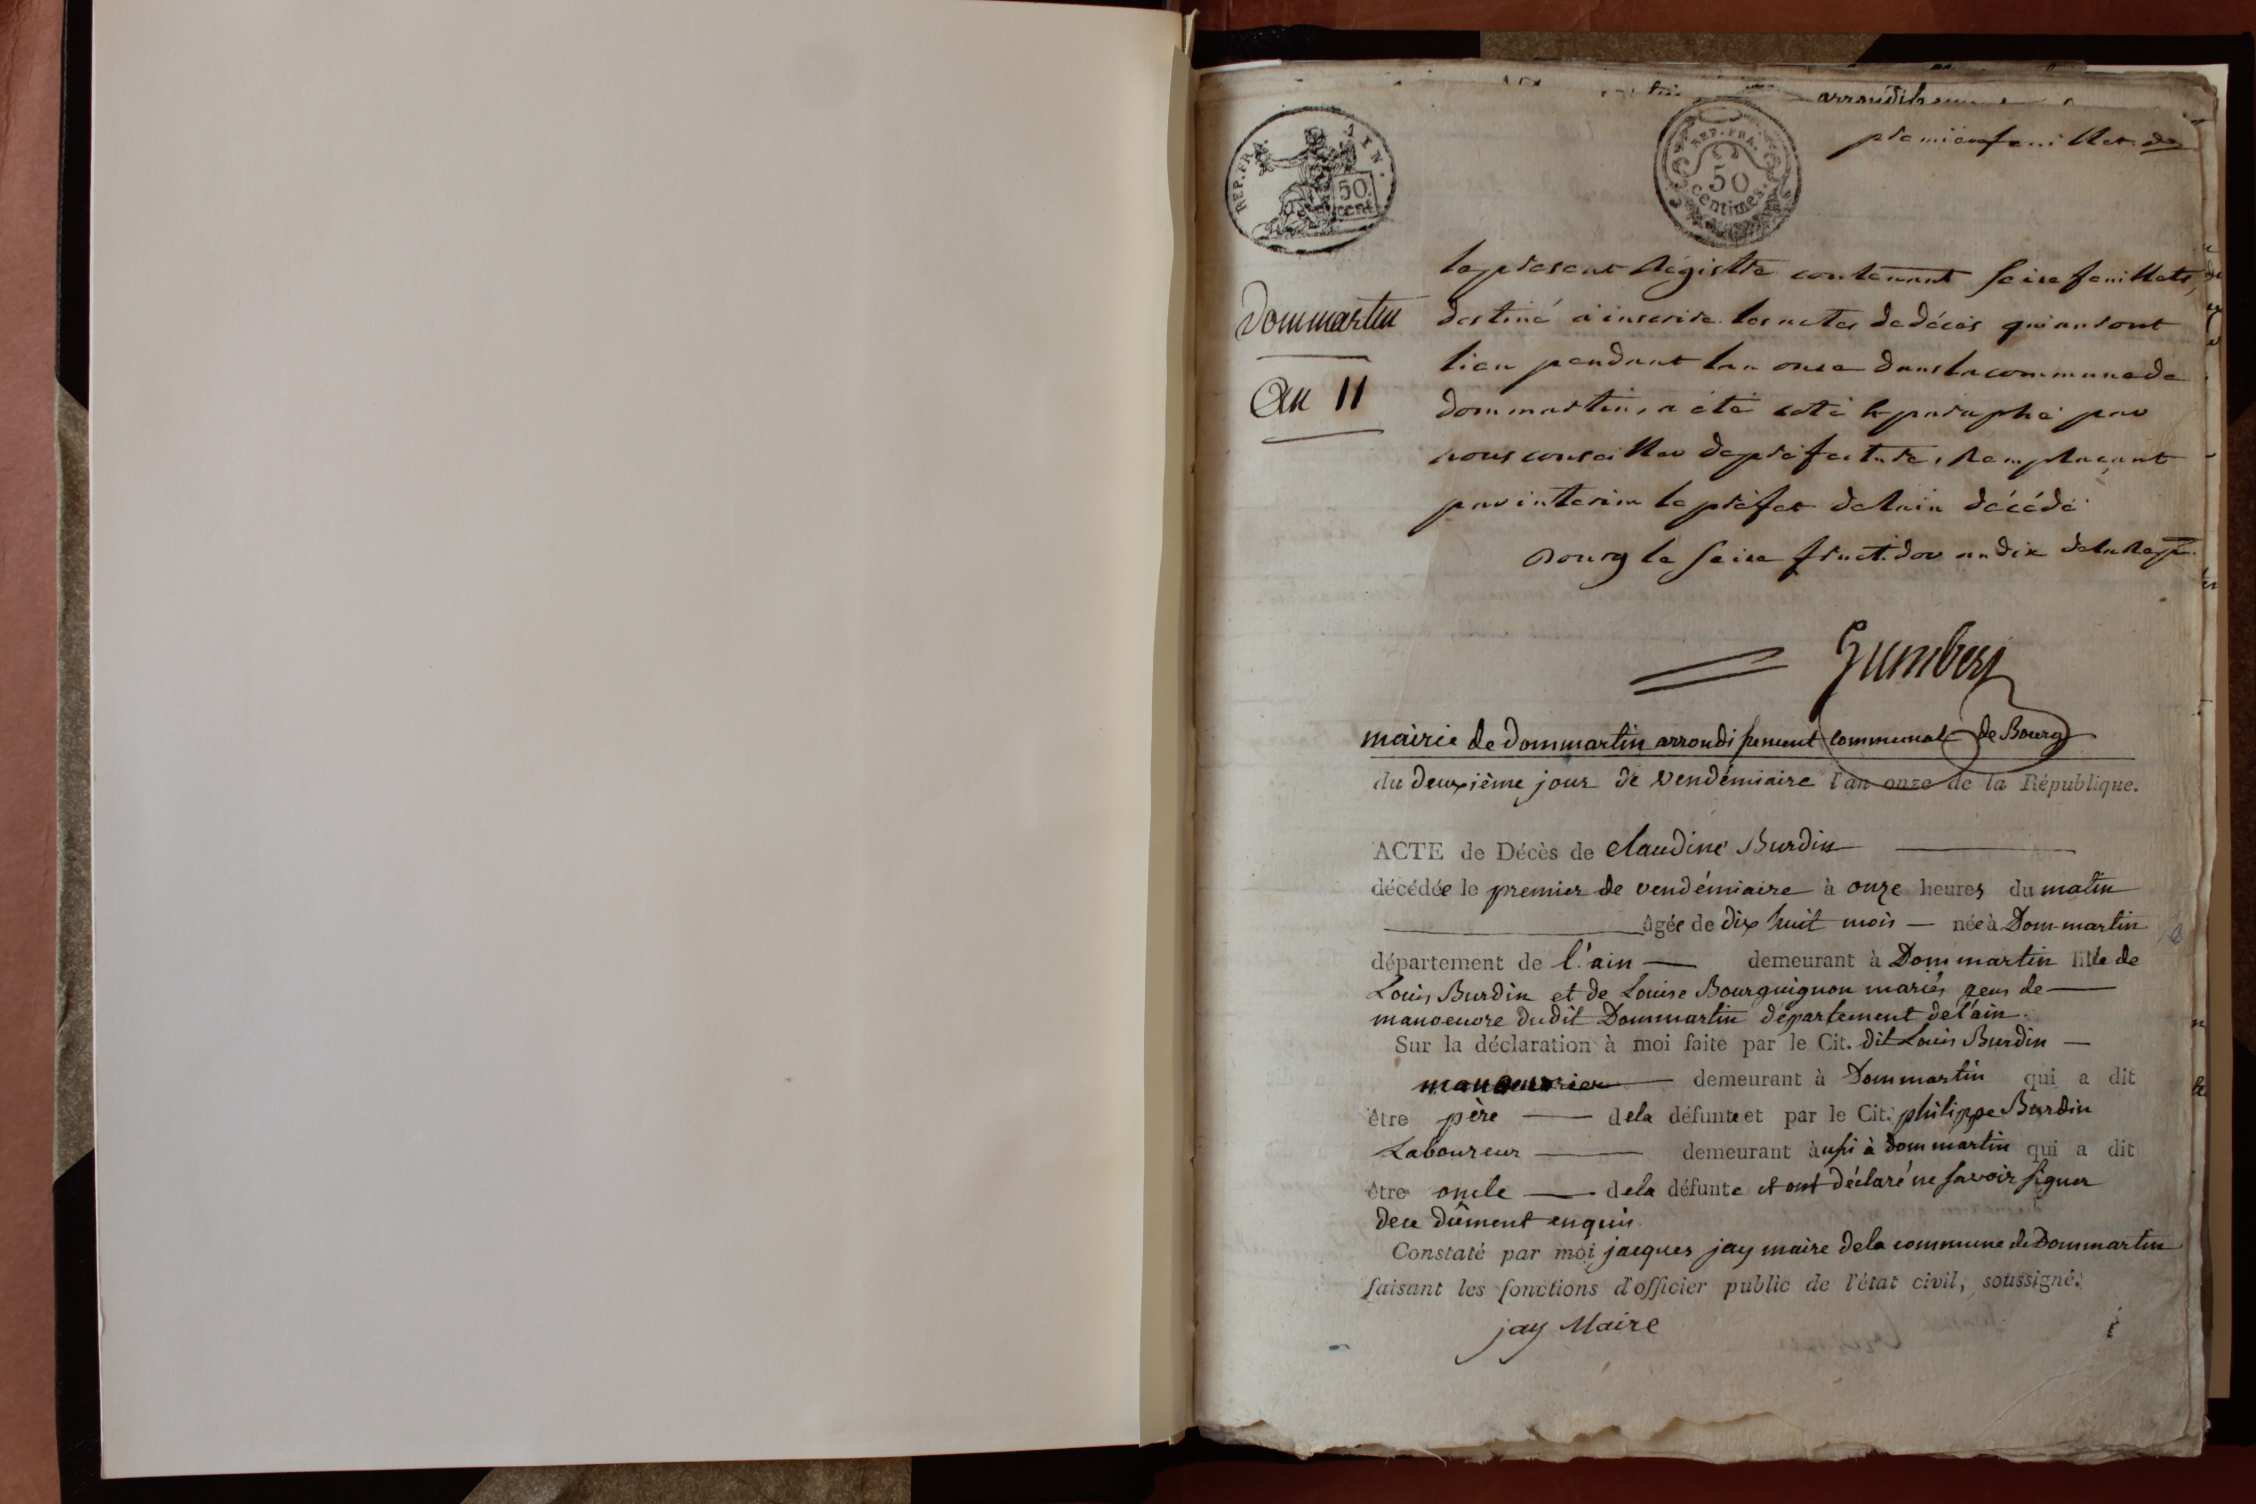 arrondissement
premier feuillet
REP. FRA. AIN. 50 cent.
REP. FRA. 50 centimes.
Dommartin
An 11
le present Régistre contenant seize feuillets,
destiné à inscrire les actes de décès qui auront
lieu pendant l'an onze dans la commune de
Dommartin, a été coté & paraphé par
nous conseiller de préfecture, Remplaçant
par interim le préfet de l'ain décédé
Bourg le seize fructidor an dix de la Rep.
mairie de Dommartin arrondissement communal de Bourg
du deuxième jour de Vendémiaire l'an onze de la République.
ACTE de Décès de claudine Burdin
décédée le premier de vendémiaire à onze heures du matin
âgée de dix huit mois — née à Dommartin
département de l'ain — demeurant à Dommartin fille de
Louis Burdin et de Louise Bourguignon mariés gens de —
manoeuvre dudit Dommartin département de l'ain.
Sur la déclaration à moi faite par le Cit. dit Louis Burdin —
manoeuvrier — demeurant à Dommartin qui a dit
être père — de la défunte et par le Cit. philippe Burdin
Laboureur — demeurant aussi à Dommartin qui a dit
être oncle — de la défunte et ont déclaré ne savoir signer
de ce dûment enquis
Constaté par moi jacques jay maire de la commune de Dommartin
faisant les fonctions d'officier public de l'état civil, soussigné.
jay Maire